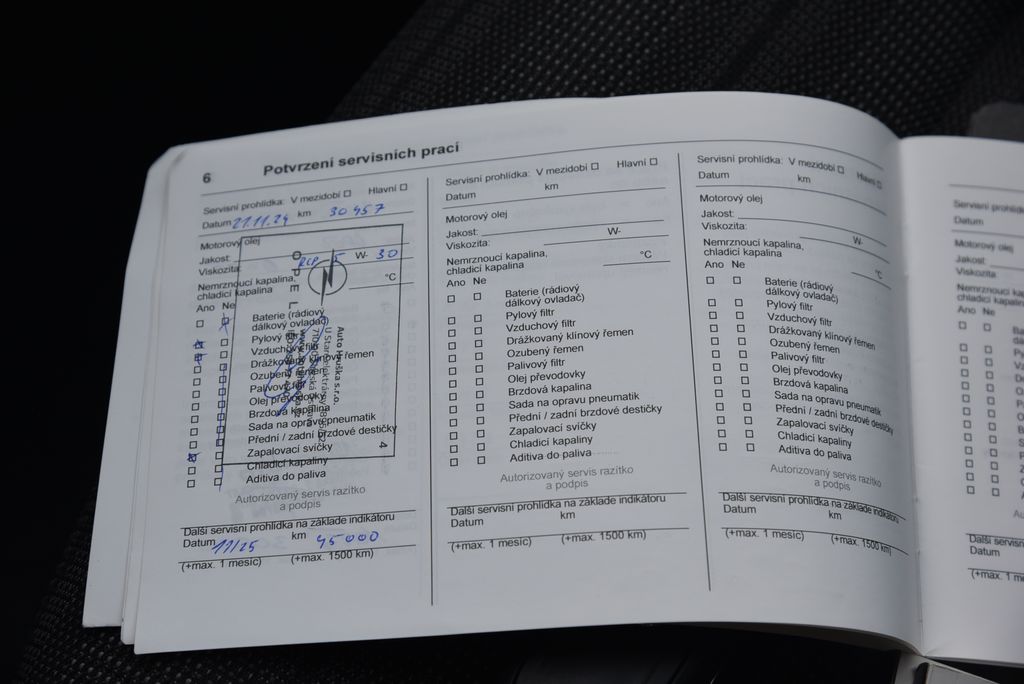 6 Potvrzení servisních prací
Servisní prohlídka: V mezidobí ☐ Hlavní ☐
Datum 21.11.24 km 30 457
Motorový olej
Jakost:
Viskozita: 5 W- 30
Nemrznoucí kapalina,
chladicí kapalina °C
Ano Ne
Baterie (rádiový
dálkový ovladač)
Pylový filtr
Vzduchový filtr
Drážkovaný klínový řemen
Ozubený řemen
Palivový filtr
Olej převodovky
Brzdová kapalina
Sada na opravu pneumatik
Přední / zadní brzdové destičky
Zapalovací svíčky
Chladicí kapaliny
Aditiva do paliva
OPEL
Auto s.r.o.
4
Autorizovaný servis razítko
a podpis
Další servisní prohlídka na základe indikátoru
Datum 11/25 km 45000
(+max. 1 mesíc) (+max. 1500 km)
Servisní prohlídka: V mezidobí ☐ Hlavní ☐
Datum km
Motorový olej
Jakost:
Viskozita: W-
Nemrznoucí kapalina,
chladicí kapalina °C
Ano Ne
Baterie (rádiový
dálkový ovladač)
Pylový filtr
Vzduchový filtr
Drážkovaný klínový řemen
Ozubený řemen
Palivový filtr
Olej převodovky
Brzdová kapalina
Sada na opravu pneumatik
Přední / zadní brzdové destičky
Zapalovací svíčky
Chladicí kapaliny
Aditiva do paliva
Autorizovaný servis razítko
a podpis
Další servisní prohlídka na základe indikátoru
Datum km
(+max. 1 mesíc) (+max. 1500 km)
Servisní prohlídka: V mezidobí ☐ Hlavní ☐
Datum km
Motorový olej
Jakost:
Viskozita: W-
Nemrznoucí kapalina,
chladicí kapalina °C
Ano Ne
Baterie (rádiový
dálkový ovladač)
Pylový filtr
Vzduchový filtr
Drážkovaný klínový řemen
Ozubený řemen
Palivový filtr
Olej převodovky
Brzdová kapalina
Sada na opravu pneumatik
Přední / zadní brzdové destičky
Zapalovací svíčky
Chladicí kapaliny
Aditiva do paliva
Autorizovaný servis razítko
a podpis
Další servisní prohlídka na základe indikátoru
Datum km
(+max. 1 mesíc) (+max. 1500 km)
Servisní
Datum
Motorový olej
Jakost:
Viskozita:
Nemrznoucí
chladicí kapalina
Ano Ne
Další
Datum
(+max. 1